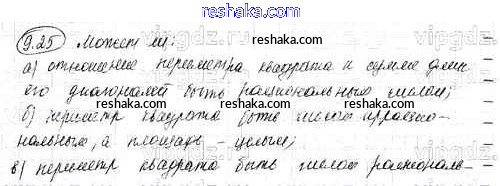 9.25 Может ли:
а) отношение периметра квадрата к сумме длин
его диагоналей быть рациональным числом;
б) периметр квадрата быть числом иррацио-
нальным, а площадь - целым;
в) периметр квадрата быть числом рациональ-
reshak.ru
reshaka.com
reshaka.com
reshaka.com
reshaka.com
vipgdz.ru